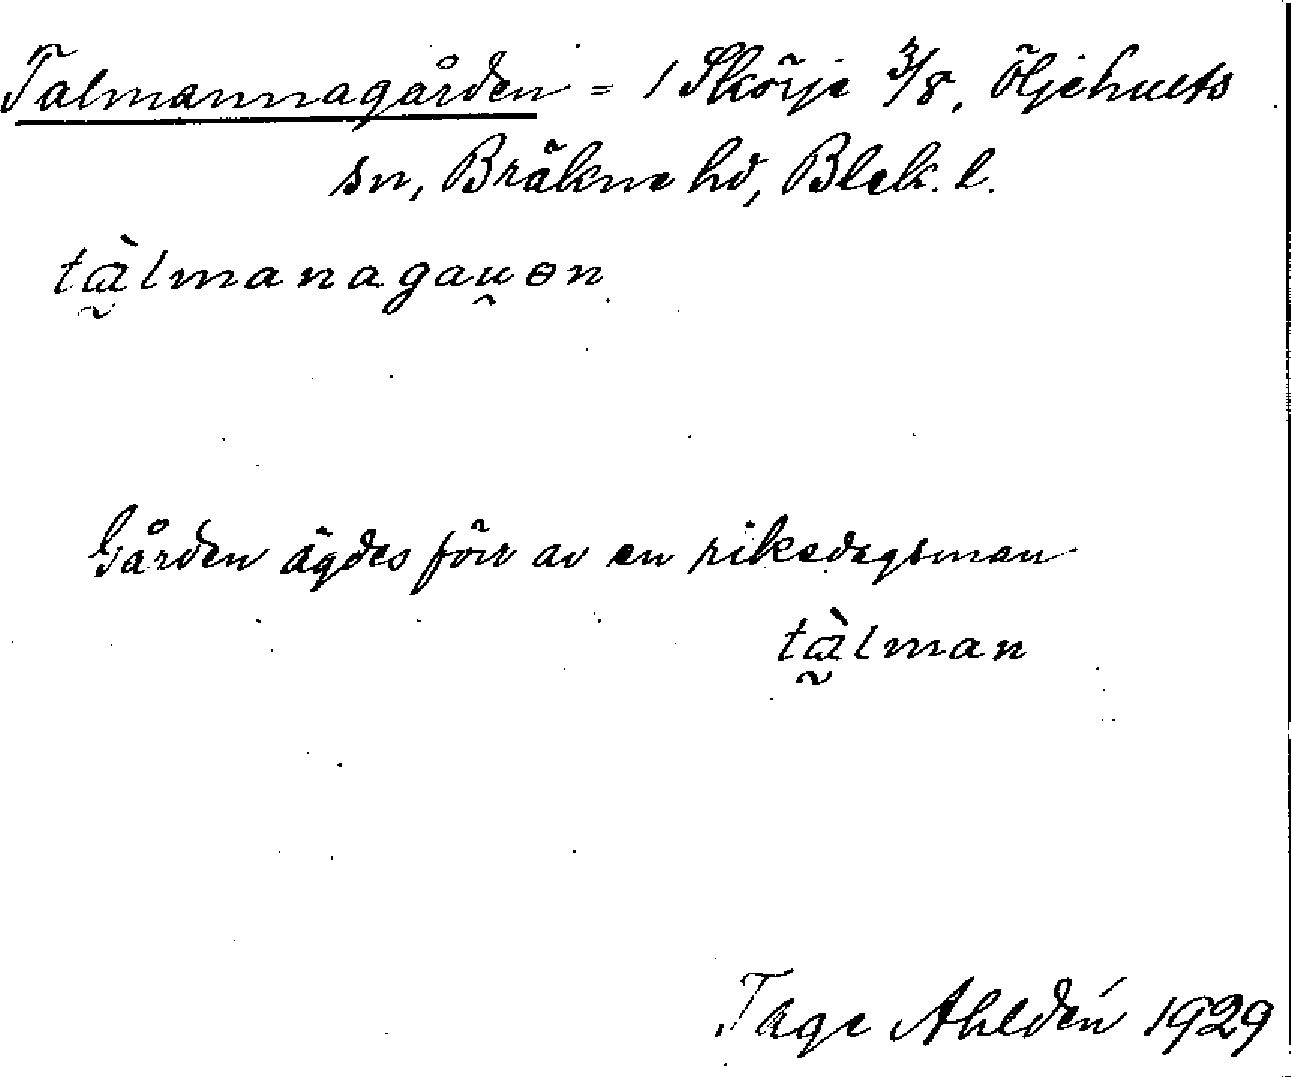 Talmannagården = 1 Skörje 3/8, Öljehults
sn, Bräkne hd, Blek. l.
tàlmanagau̯ɵn
Gården ägdes förr av en riksdagsman
tàlman
Tage Ahldén 1929